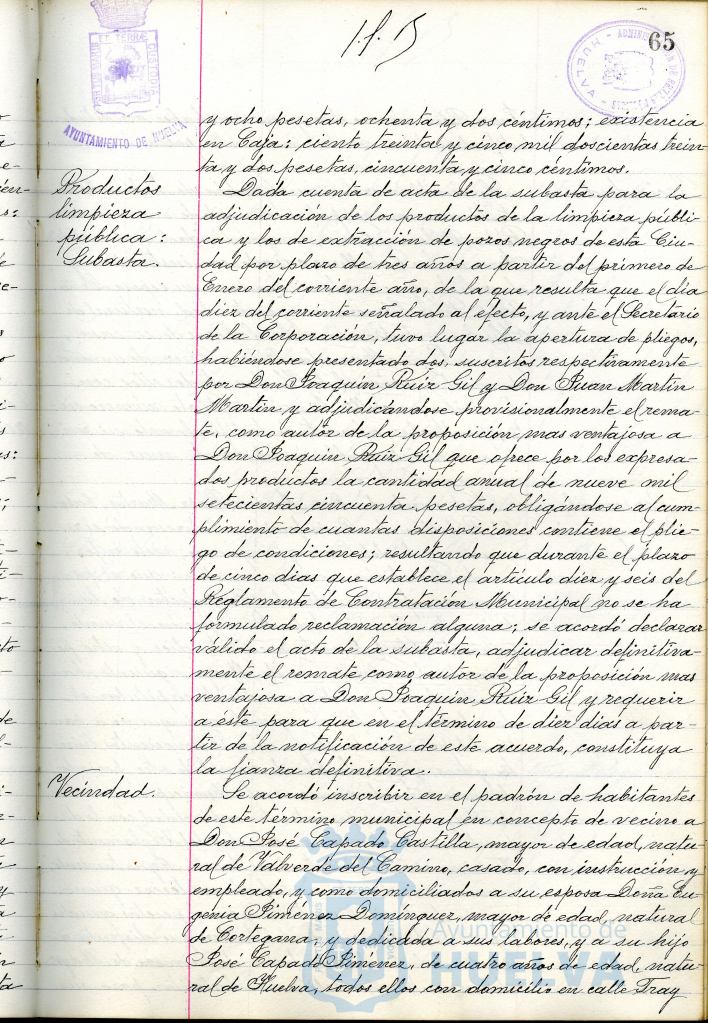 65
AYUNTAMIENTO DE HUELVA
y ocho pesetas, ochenta y dos céntimos; existencia
en Caja: ciento treinta y cinco mil doscientas trein-
ta y dos pesetas, cincuenta y cinco céntimos.
Productos
limpieza
pública:
Subasta.
Dada cuenta de acta de la subasta para la
adjudicación de los productos de la limpieza públi-
ca y los de extracción de pozos negros de esta Ciu-
dad por plazo de tres años a partir del primero de
Enero del corriente año, de la que resulta que el dia
diez del corriente señalado al efecto, y ante el Secretario
de la Corporación, tuvo lugar la apertura de pliegos,
habiéndose presentado dos, suscritos respectivamente
por Don Joaquin Ruiz Gil y Don Juan Martin
Martin y adjudicándose provisionalmente el rema-
te, como autor de la proposición mas ventajosa a
Don Joaquin Ruiz Gil que ofrece por los expresa-
dos productos la cantidad anual de nueve mil
setecientas cincuenta pesetas, obligándose al cum-
plimiento de cuantas disposiciones contiene el plie-
go de condiciones; resultando que durante el plazo
de cinco dias que establece el artículo diez y seis del
Reglamento de Contratación Municipal no se ha
formulado reclamación alguna; se acordó declarar
válido el acto de la subasta, adjudicar definitiva-
mente el remate como autor de la proposición mas
ventajosa a Don Joaquin Ruiz Gil y requerir
a éste para que en el término de diez dias a par-
tir de la notificación de este acuerdo, constituya
la fianza definitiva.
Vecindad.
Se acordó inscribir en el padrón de habitantes
de este término municipal en concepto de vecino a
Don José Capado Castilla, mayor de edad, natu-
ral de Valverde del Camino, casado, con instrucción y
empleado, y como domiciliados a su esposa Doña Eu-
genia Jiménez Domínguez, mayor de edad, natural
de Cortegana, y dedicada a sus labores, y a su hijo
José Capado Jiménez, de cuatro años de edad, natu-
ral de Huelva, todos ellos con domicilio en calle Fray
Ayuntamiento de
HUELVA